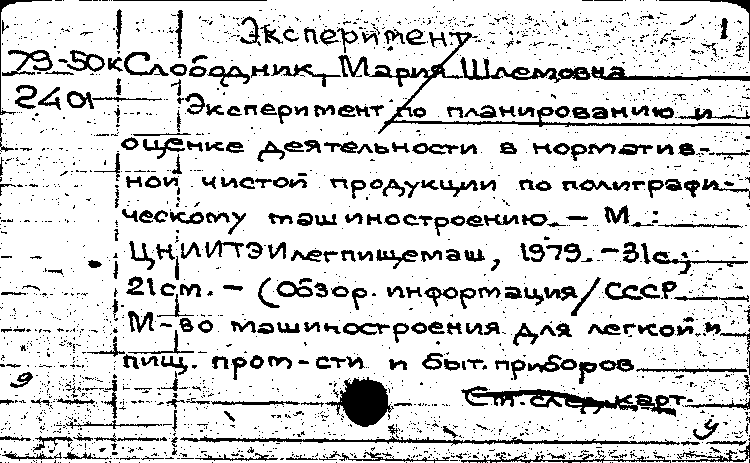 Эксперимент 1
79-50к Слободник, Мария Шлемовна
2401 Эксперимент по планированию и
оценке деятельности в норматив-
ной чистой продукции по полиграфи-
ческому машиностроению. – М. :
ЦНИИТЭИлегпищемаш, 1979. – 31с.;
21см. – (Обзор. информация/СССР
М-во машиностроения для легкой и
пищ. пром-сти и быт. приборов
9 См. след. карт.